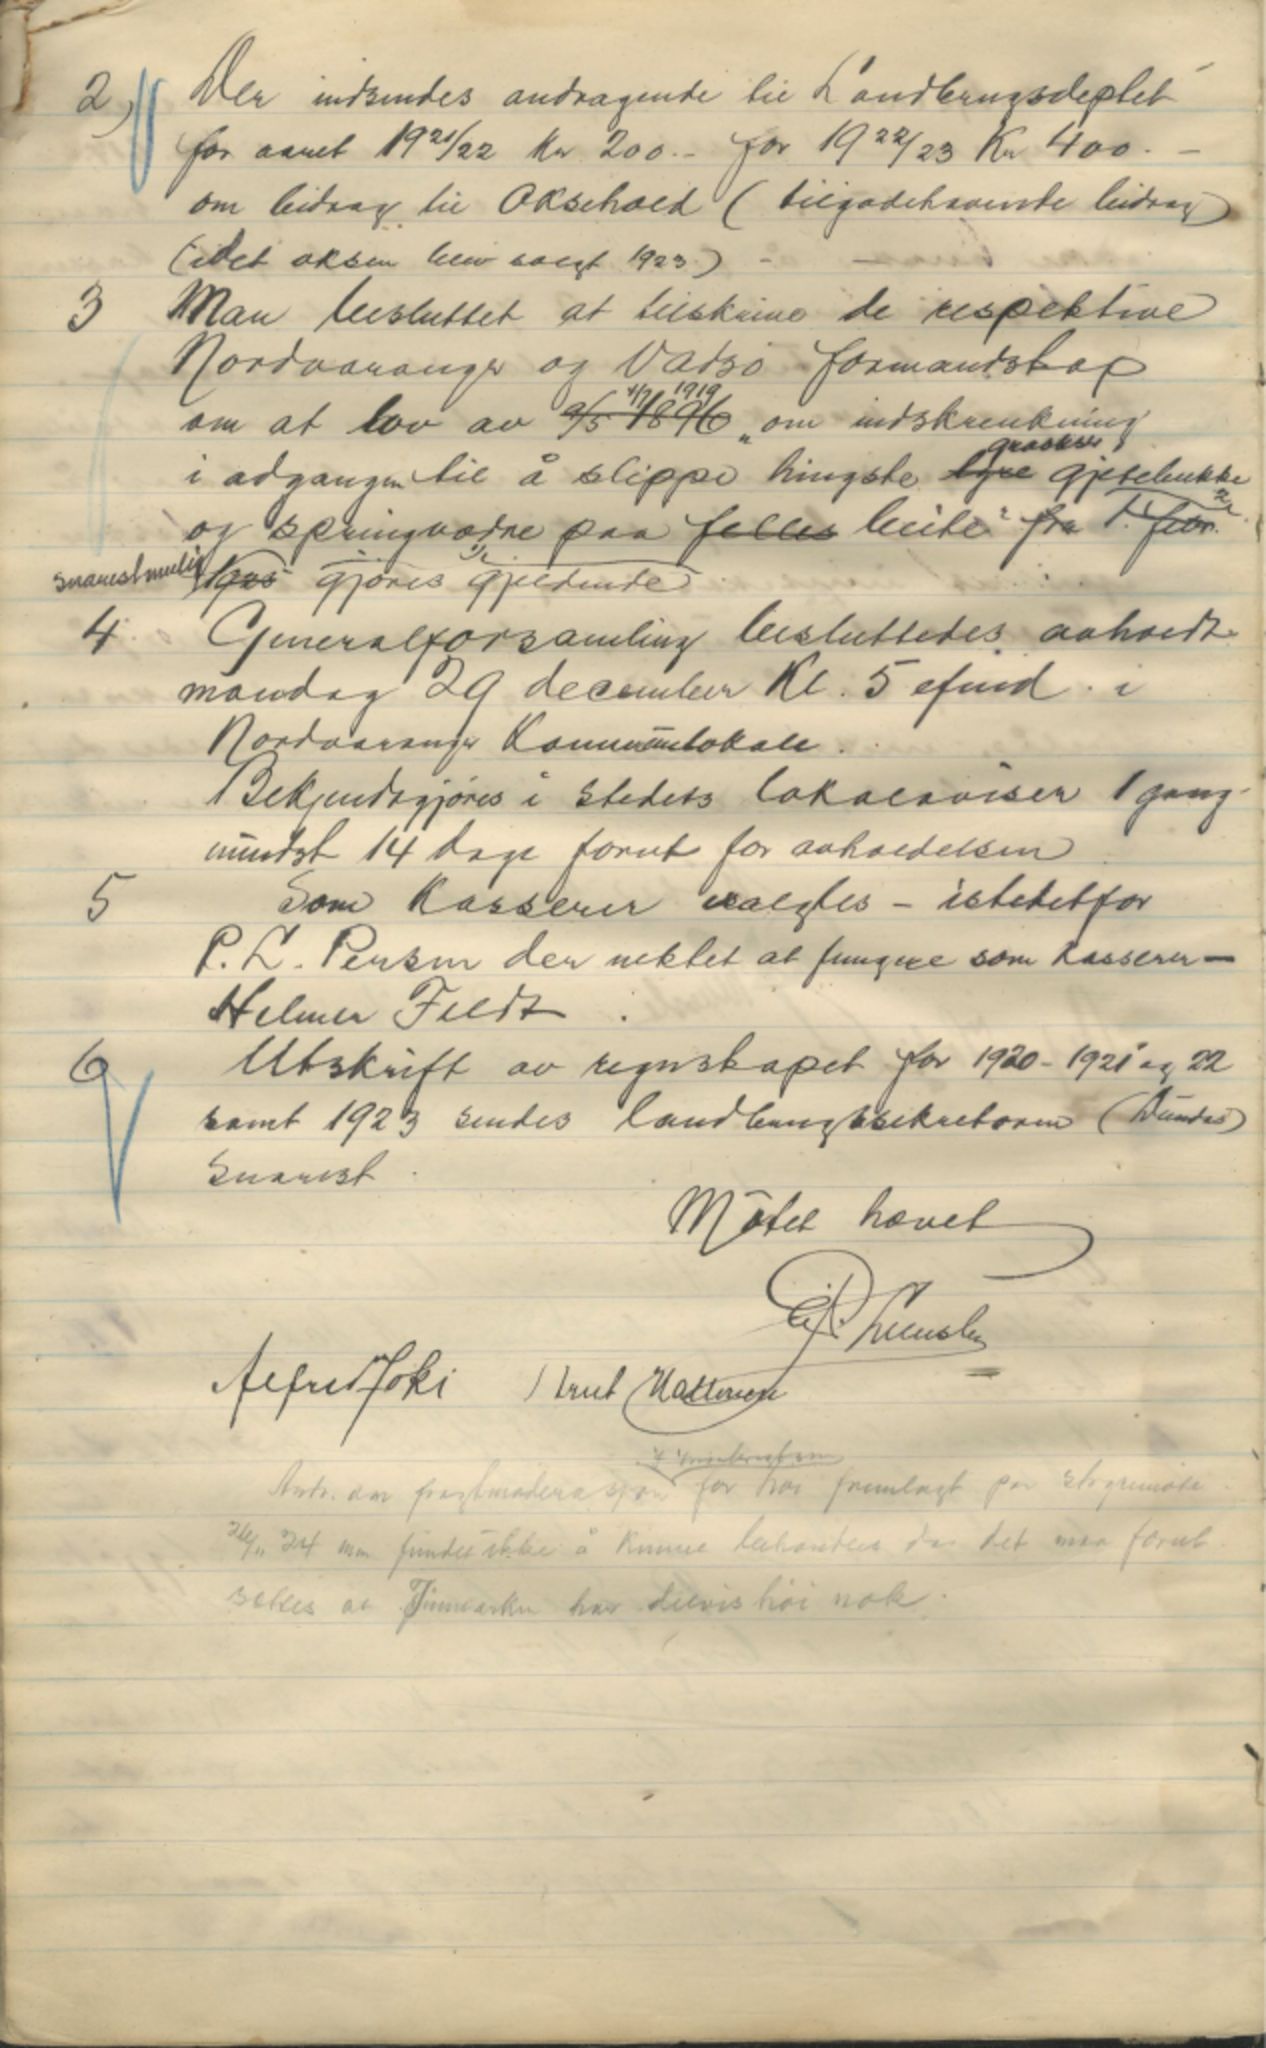 2) Der indsendes andragende til Landbrugsdeptet
for aaret 1921/22 Kr 200.- for 1922/23 Kr 400.-
om bidrag til Oksehold (tilgodehavende bidrag)
(idet oksen blev solgt 1923)
3 Man besluttet at tilskrive de respektive
Nordvaranger og Vadsö formandskap
4/7 1919
om at lov av 9/5 1896 "om indskrenkning
graokser
i adgangen til å slippe hingste tyre gjetebukke
og springvædre paa felles beite" fra 1. febr.
snarest mulig gjøres gjeldende
4 Generalforsamling besluttedes avholdt
mandag 29 december Kl. 5 efmd. i
Nordvaranger Kommunelokale.
Bekjendtgjøres i stedets lokalaviser 1 gang
mindst 14 dage forut for avholdelsen
5 Som Kasserer valgtes - istedetfor
P. L. Persen der nektet at fungere som kasserer -
Helmer Feldt.
6 Utskrift av regnskapet for 1920 - 1921 og 22
samt 1923 sendes landbrugssekretæren (Dundas)
snarest.
Mötet hævet
Alfred Joki
for höi fremlagt paa styremöte
26/11 24 men fundet ikke å kunne behandles da det maa forut
sökes at Finmarken har höi nok.